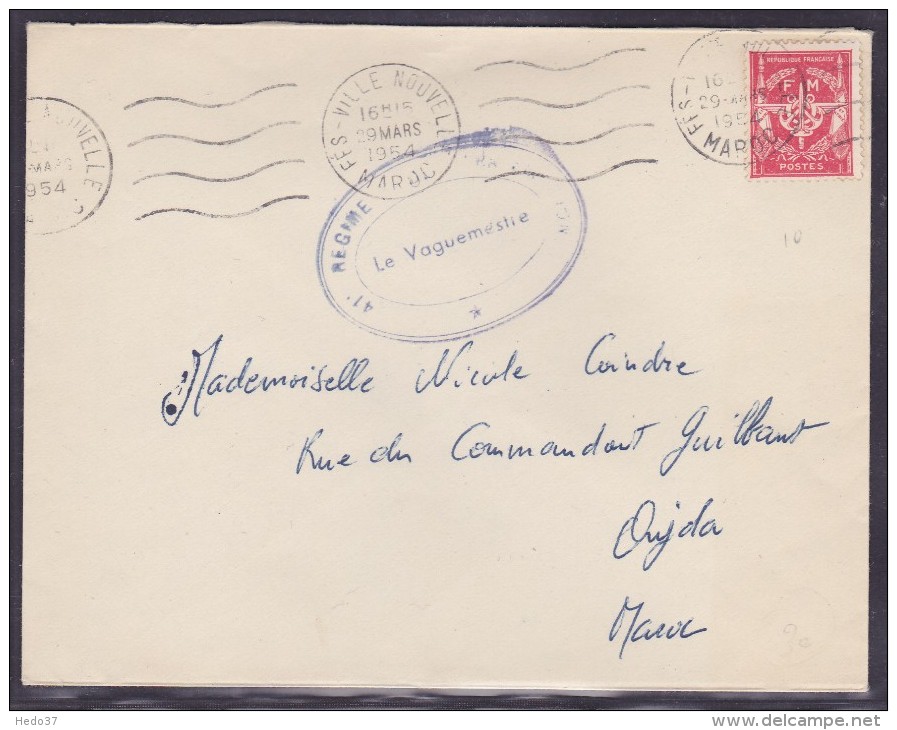 NOUVELLE
1954
FÈS-VILLE NOUVELLE
16H15
29 MARS
1954
MAROC
FÈS-
16
29-MARS
1954
MAROC
REPUBLIQUE FRANÇAISE
F M
POSTES
41e REGIME
Le Vaguemestre
10
Mademoiselle Nicole Coindre
Rue du Commandant Guilbant
Oujda
Maroc
Hedo37
www.delcampe.net